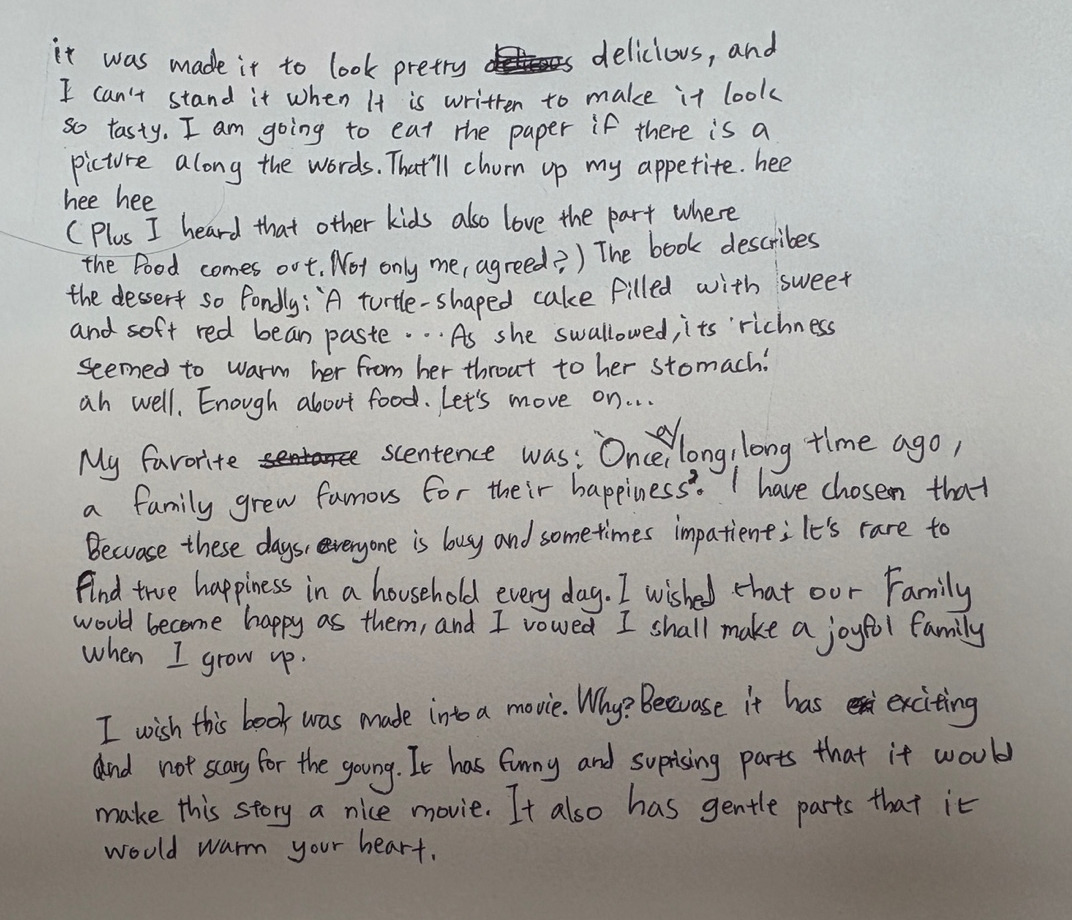 it was made it to look pretry delicious, and
I can't stand it when it is written to make it look
so tasty. I am going to eat the paper if there is a
picture along the words. That'll churn up my appetite. hee
hee hee
(Plus I heard that other kids also love the part where
the food comes out. Not only me, agreed?) The book describes
the dessert so fondly: 'A turtle-shaped cake filled with sweet
and soft red bean paste ... As she swallowed, its richness
seemed to warm her from her throut to her stomach!'
ah well. Enough about food. Let's move on...
My favorite sentance scentence was: 'Once, a long, long time ago,
a family grew famous for their happiness'. I have chosen that
Becuase these days, everyone is busy and sometimes impatient; It's rare to
find true happiness in a household every day. I wished that our Family
would become happy as them, and I vowed I shall make a joyful family
when I grow up.
I wish this book was made into a movie. Why? Becuase it has exciting
and not scary for the young. It has funny and suprising parts that it would
make this story a nice movie. It also has gentle parts that it
would warm your heart.